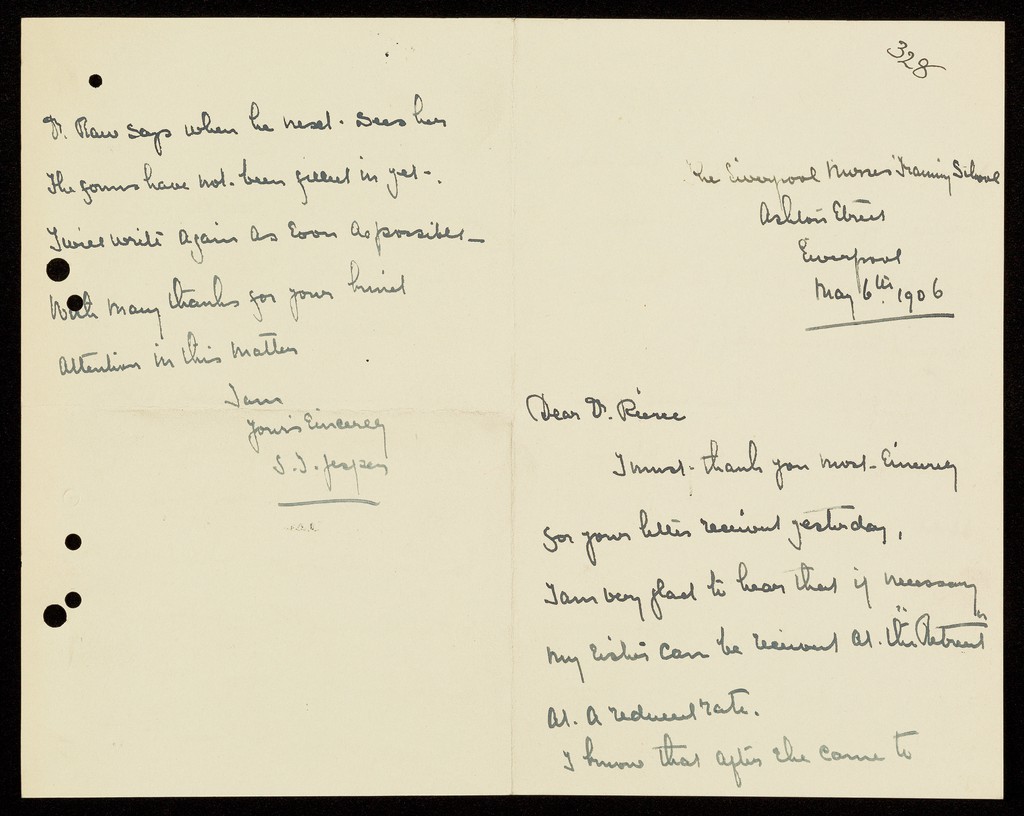 328
The Liverpool Nurses Training School
Ashton Street
Liverpool
May 6th. 1906
Dear Dr. Pierce
I must thank you most sincerely
for your letter received yesterday,
I am very glad to hear that if necessary
my sister can be received at "the Retreat"
at a reduced rate.
I know that after she came to
Dr. Raw says when he next sees her
The forms have not been filled in yet.
I will write again as soon as possible
With many thanks for your kind
attention in this matter
I am
Yours Sincerely
S. J. Jesper